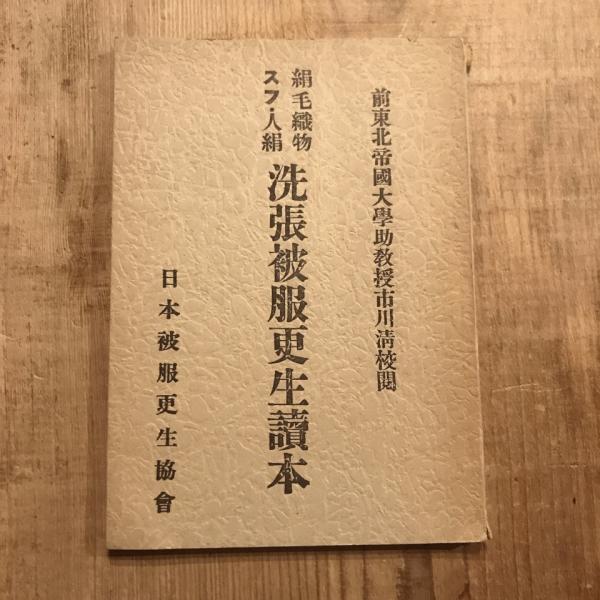 前東北帝國大學助教授市川淸校閲
絹毛織物
スフ・人絹
洗張被服更生讀本
日本被服更生協會